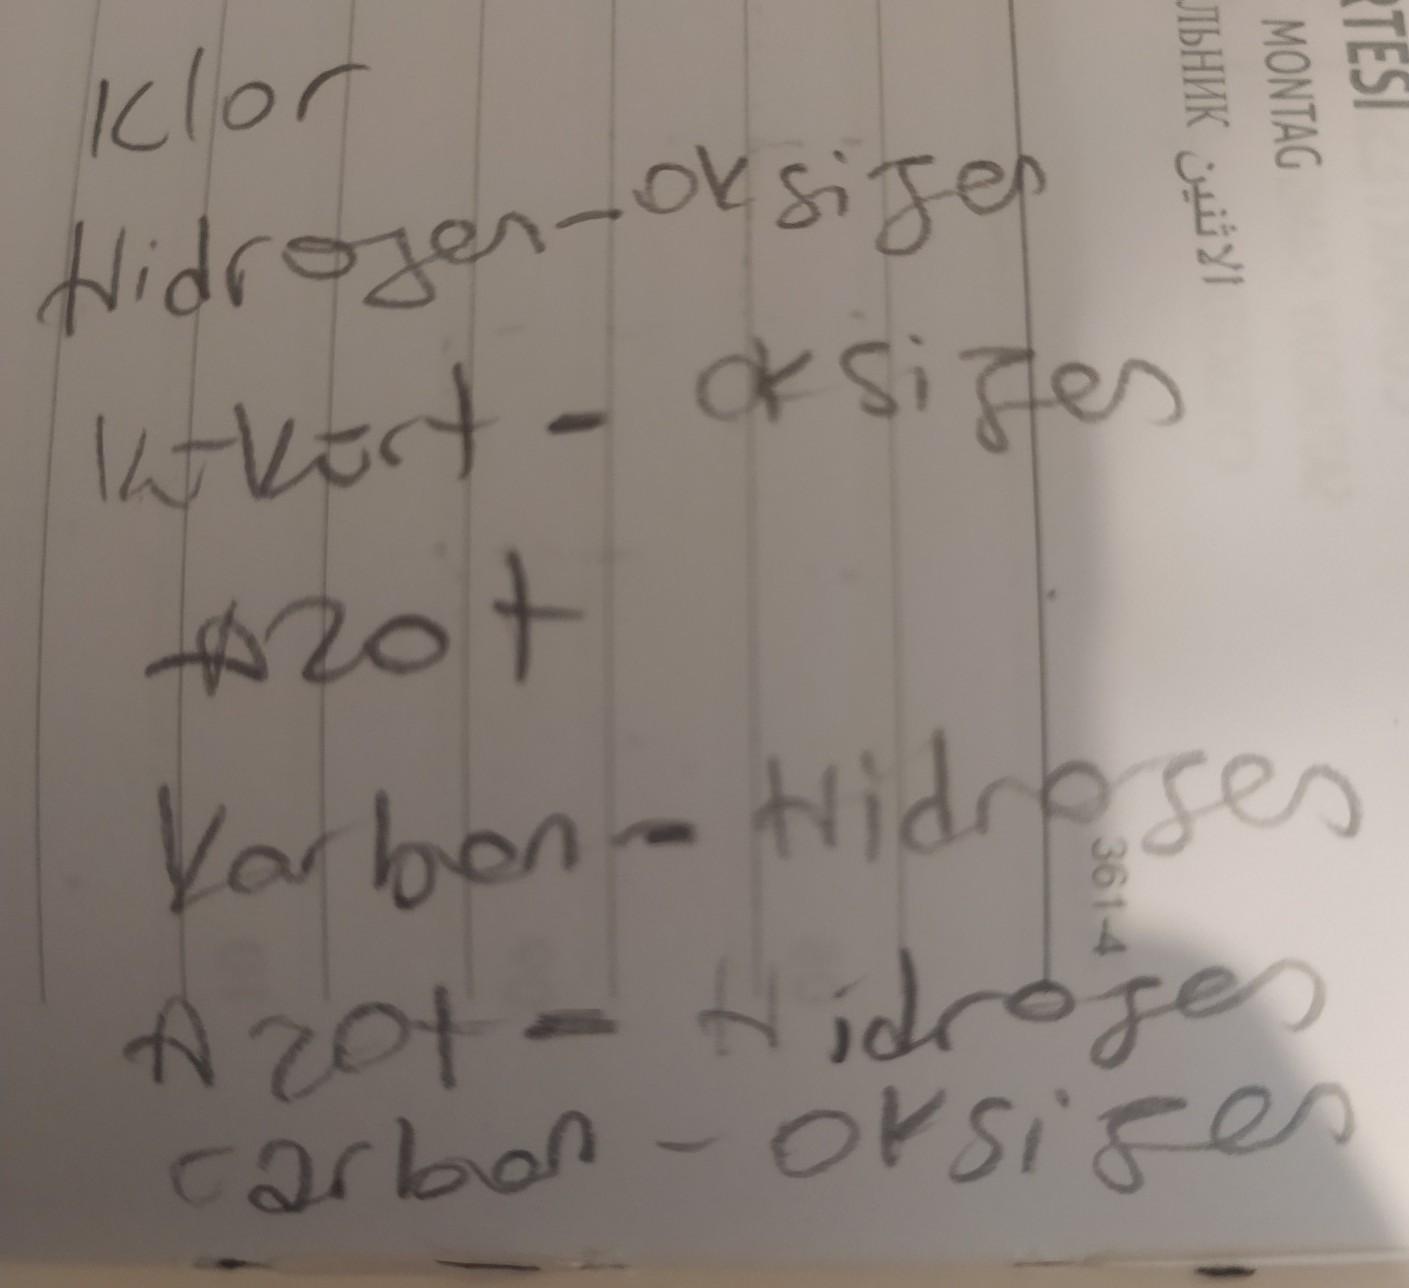 Klor
Hidrojen-oksijen
Kükürt - oksijen
Azot
Karbon - Hidrojen
Azot - Hidrojen
Carbon - oksijen
RTESİ
MONTAG
ЛЬНИК الاثنين
361-4